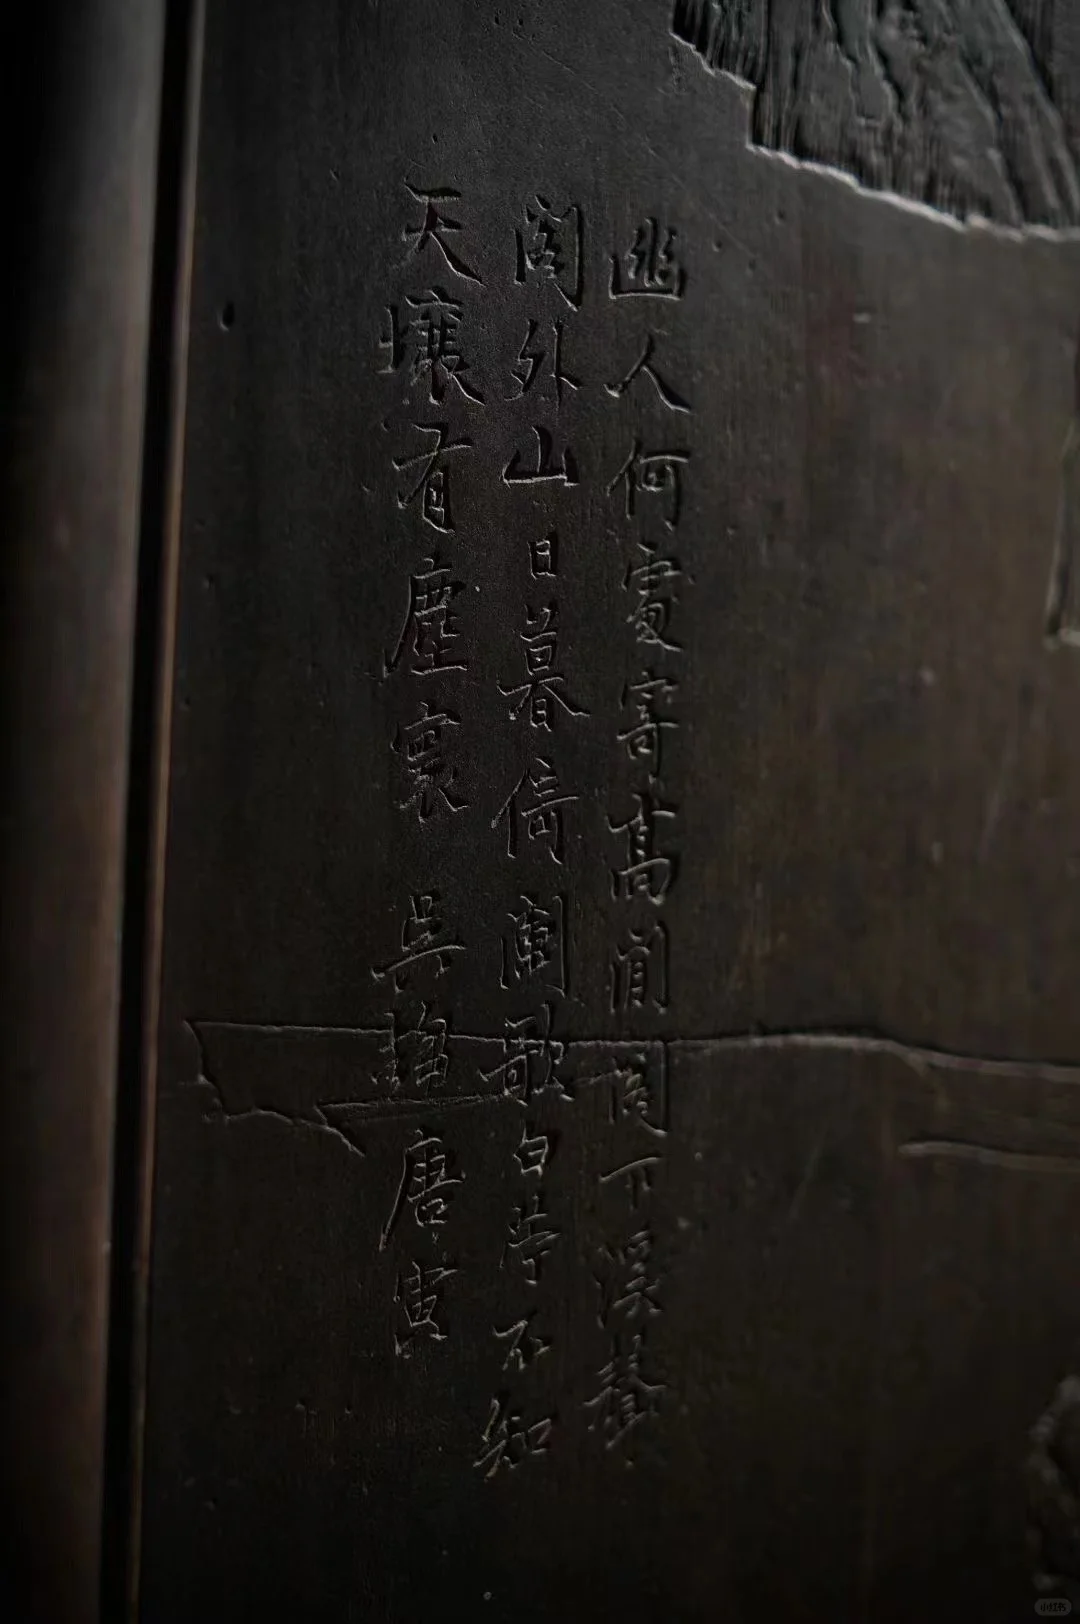 幽人何處寄高閒閣下溪聲
閣外山日暮倚闌歌白苧不知
天壤有塵寰 吳趨唐寅
小红书